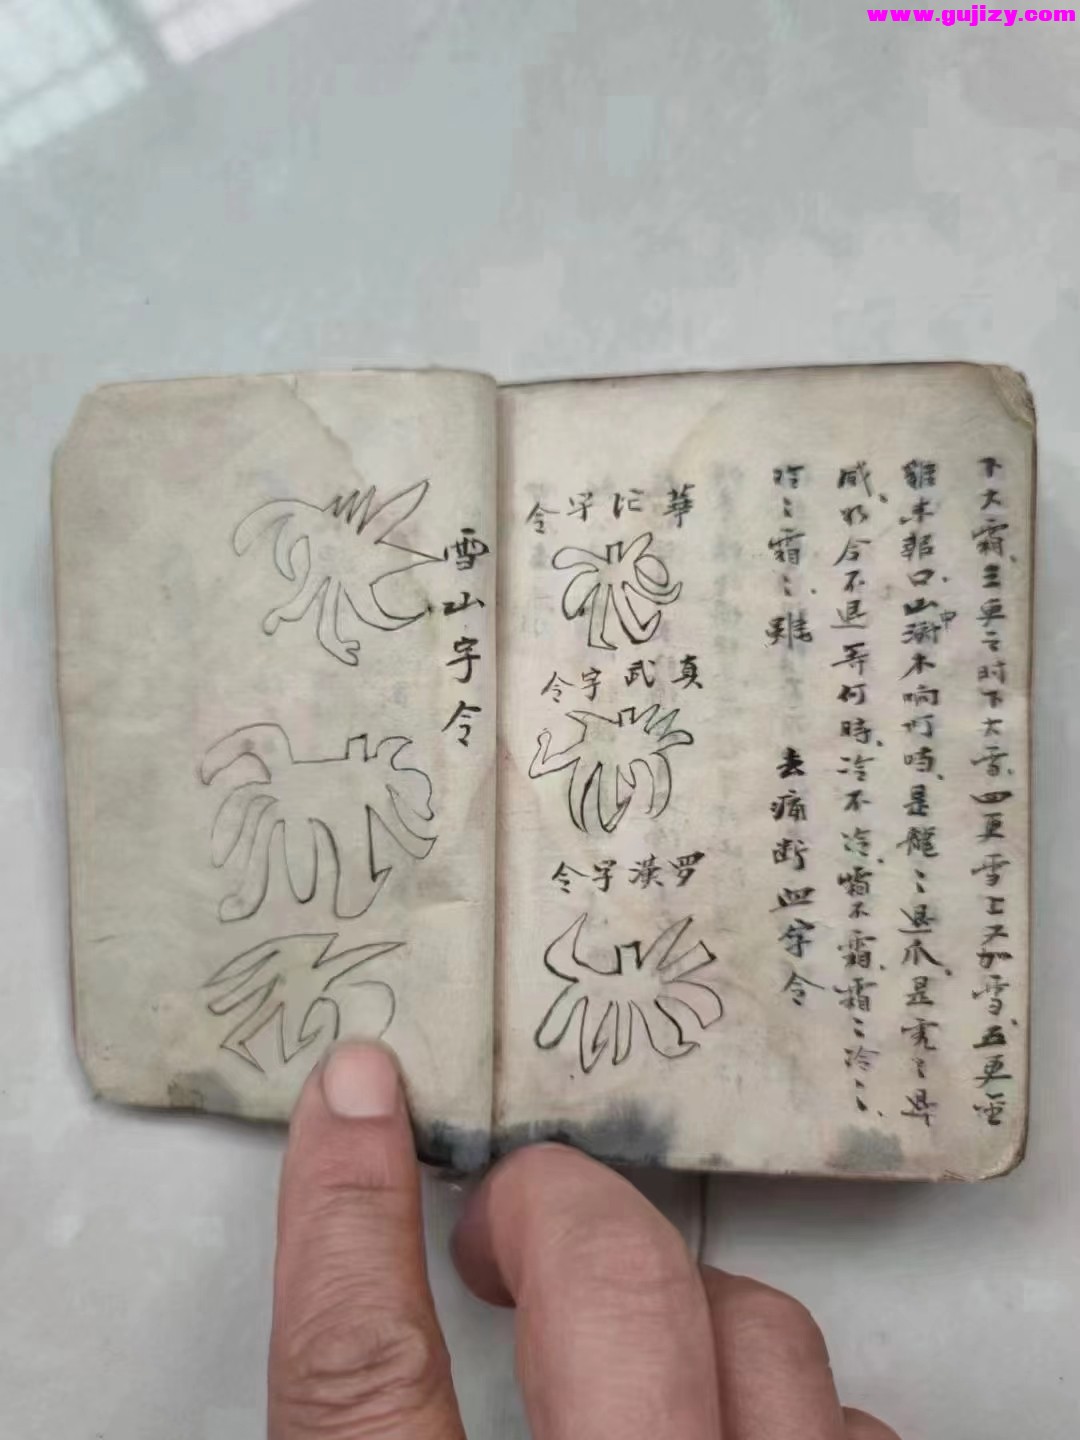 www.gujizy.com
下大霜三更之时下大雪四更雪上又加雪五更
雞未報口山中木响叮噹是龍〻退爪是虎〻退
威冷不退等何時冷不冷霜不霜霜〻冷〻
霜〻
去痛断血字令
華字令
真武字令
罗漢字令
雪山字令